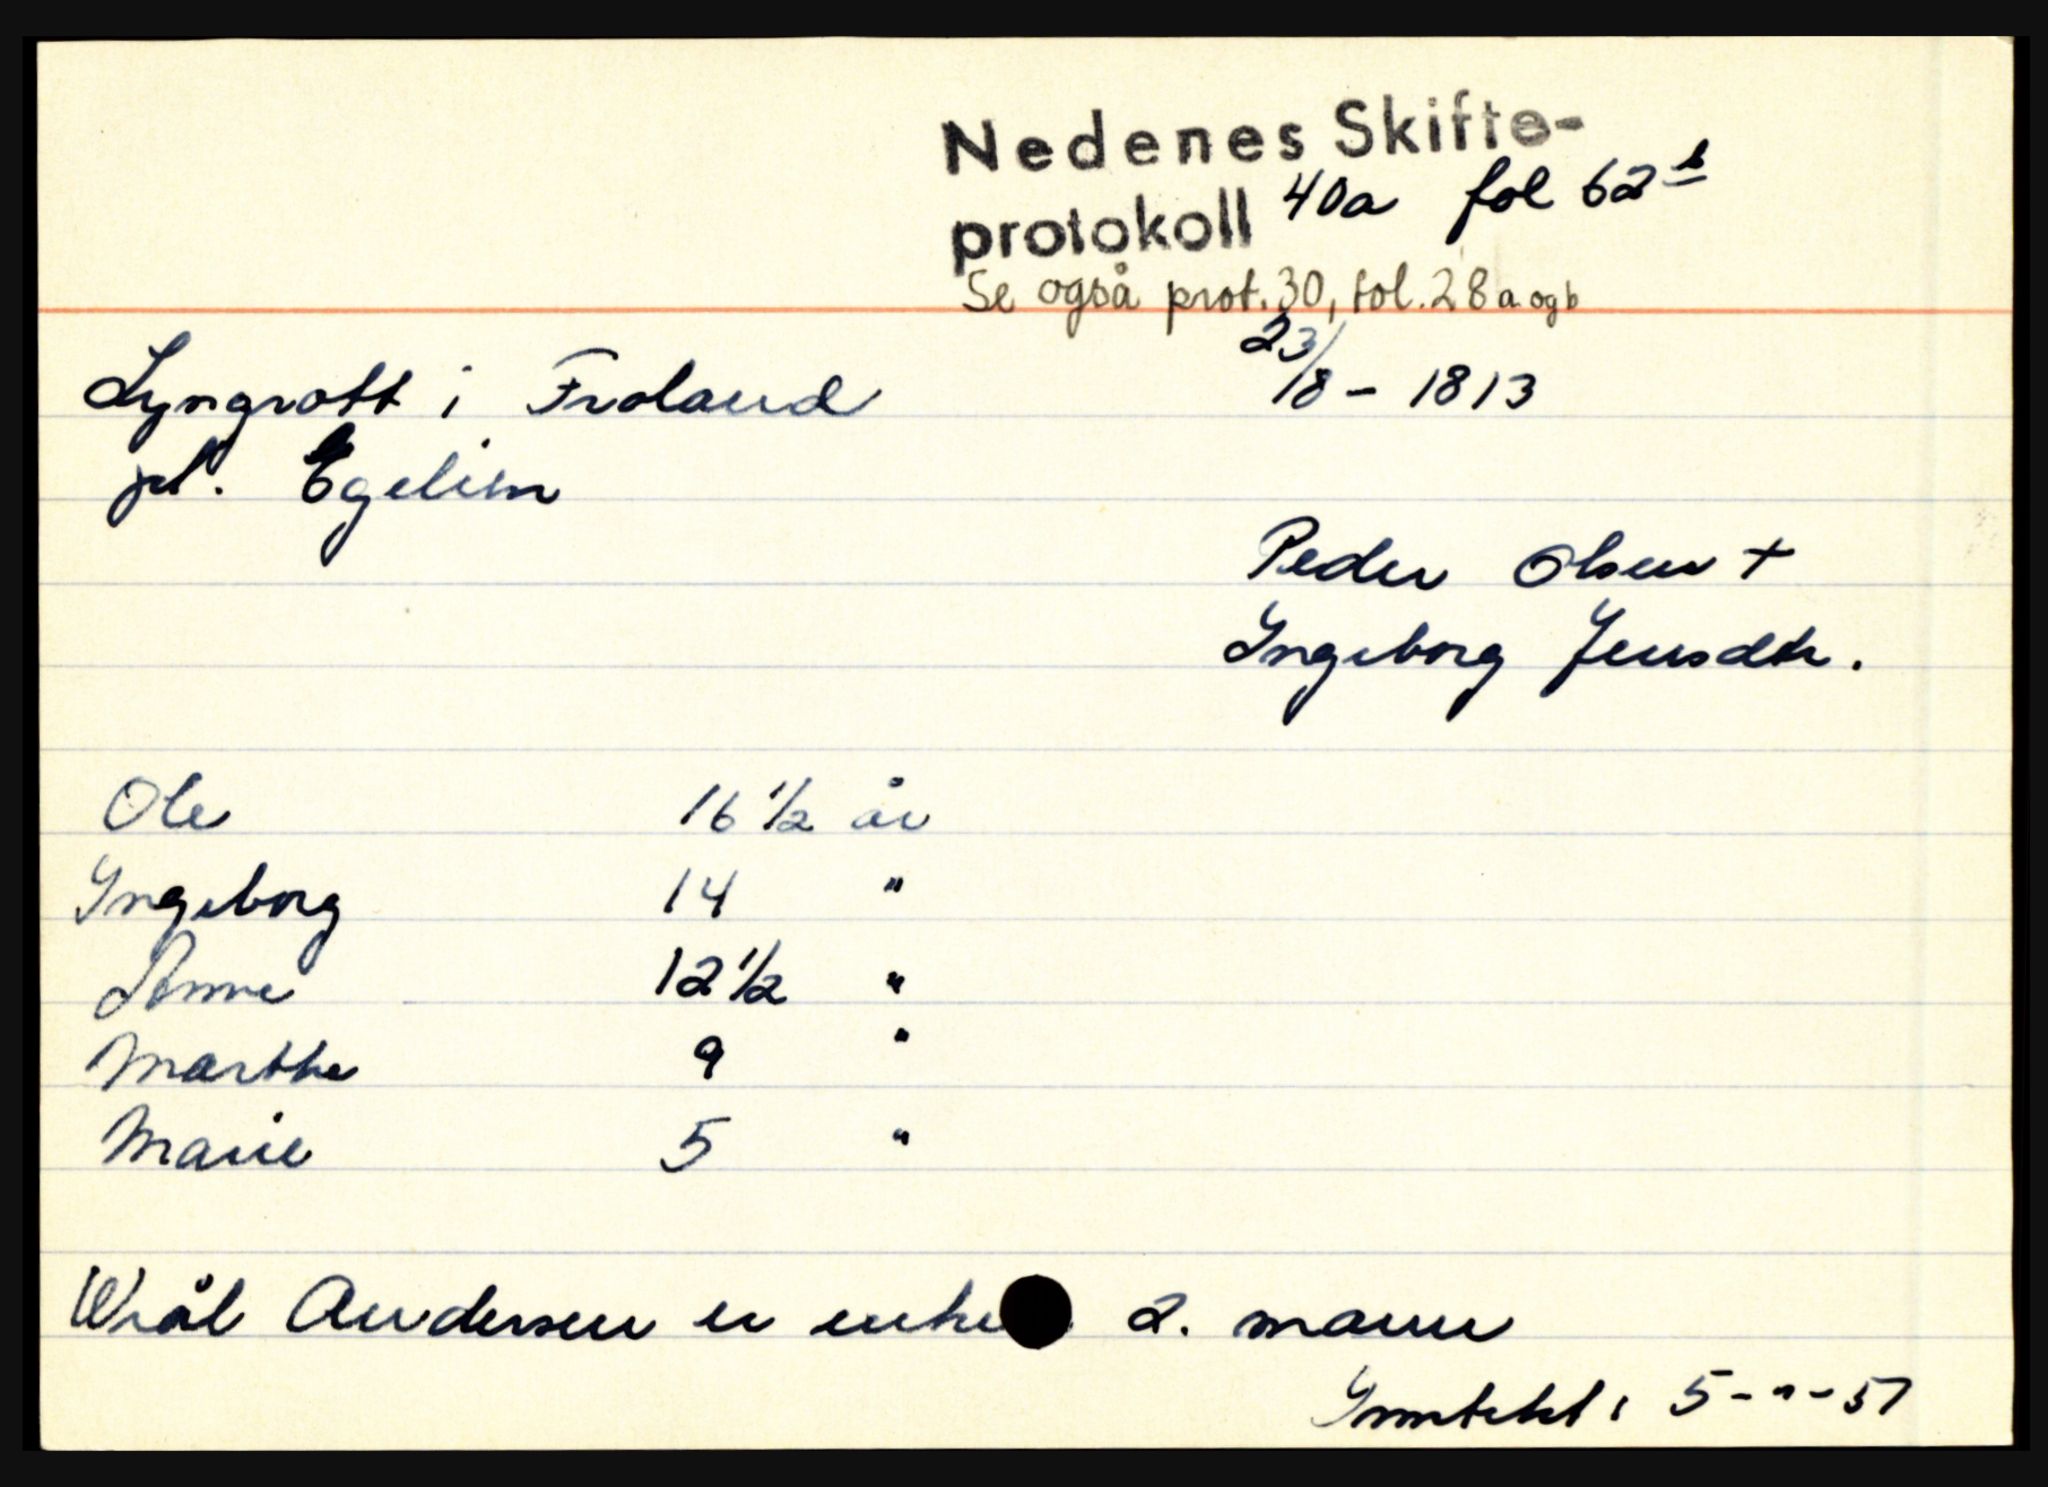 Nedenes Skifte-
protokoll 40a fol 62 b
Se også prot. 30, fol. 28 a og b
Lyngrott i Froland 23/8 - 1813
pl. Egelien
Peder Olsen +
Ingeborg Jensdtr.
Ole 16 1/2 år
Ingeborg 14 "
Anne 12 1/2 "
Marthe 9 "
Marie 5 "
Wrål Andersen er 2. mann
Inntekt: 5 - " - 51